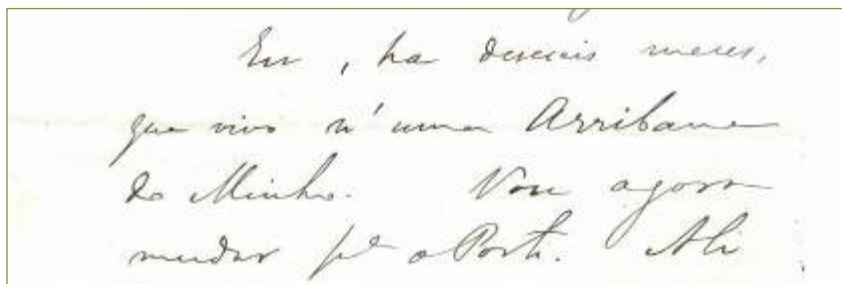 Eu, ha dezaseis mezes,
que vivo n'uma Arribana
do Minho. Vou agora
mudar pª o Porto. Ali